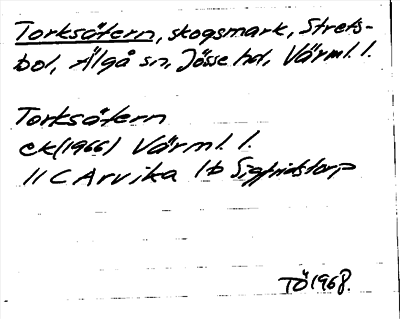 Torksätern, skogsmark, Strets-
bol, Älgå sn, Jösse hd, Värml. l.
Torksätern
ek(1966) Värml. l.
11 C Arvika 1b Sigfridstorp
TÖ 1968.